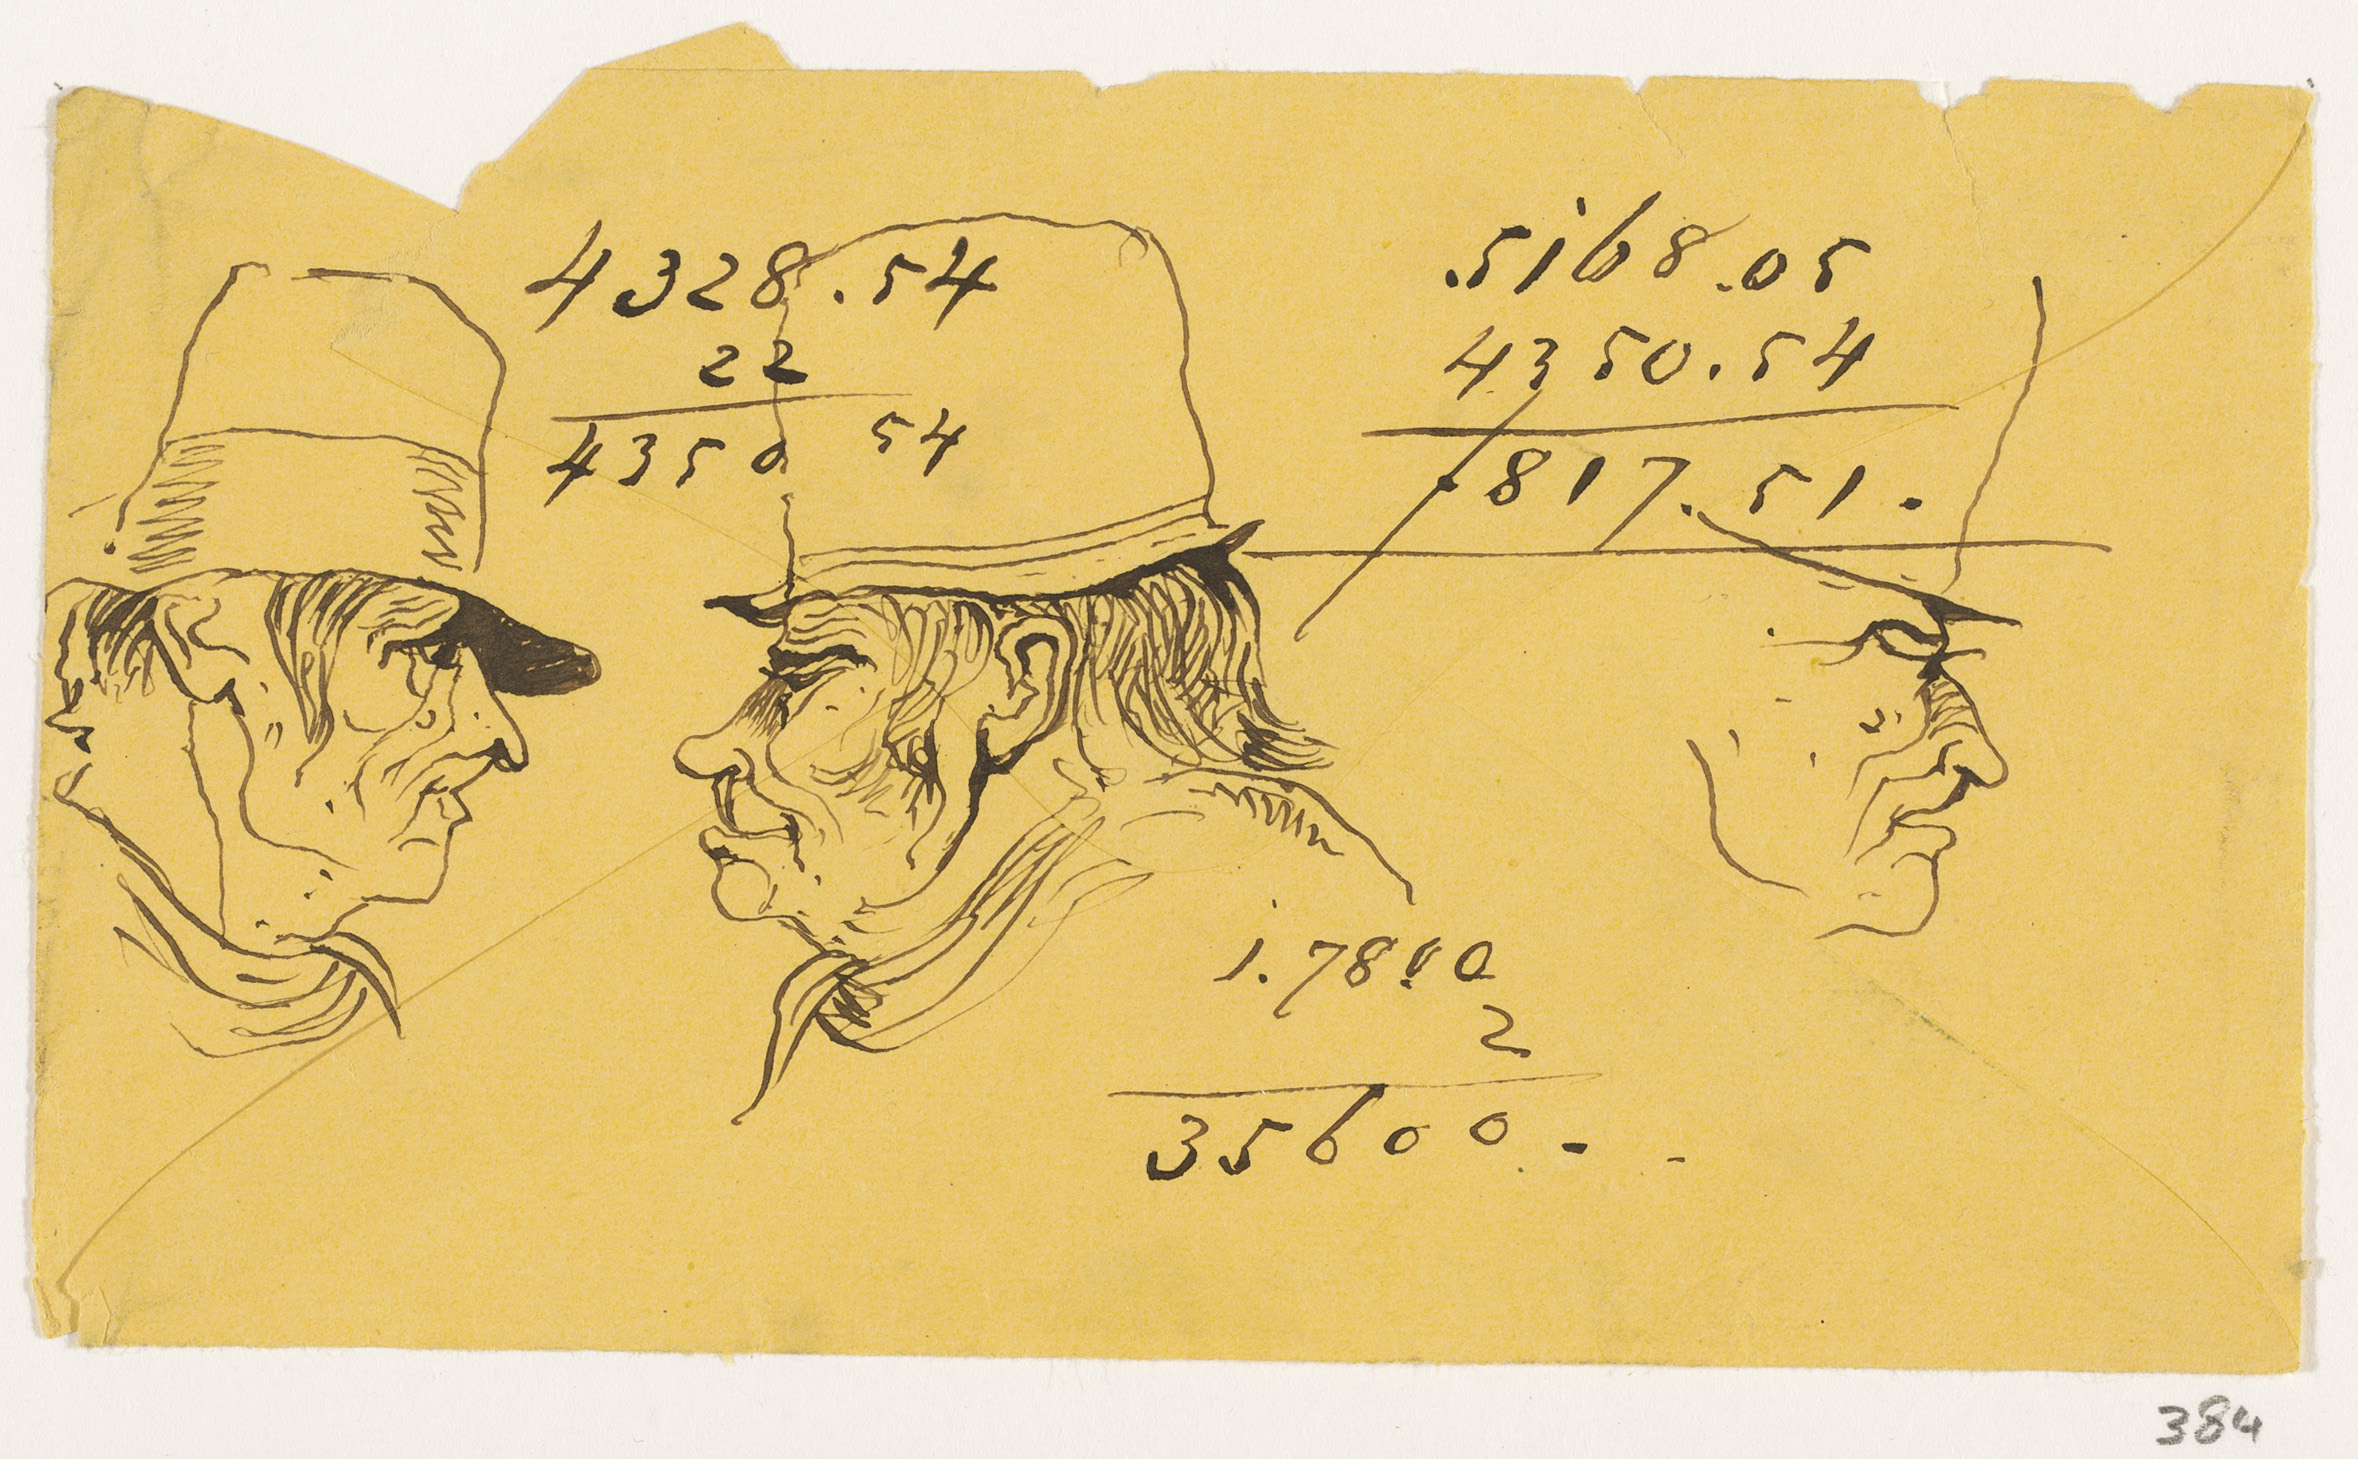 4328.54
22
4350 54
.5168.05
4350.54
817.51.
1.7800
2
35600.
384